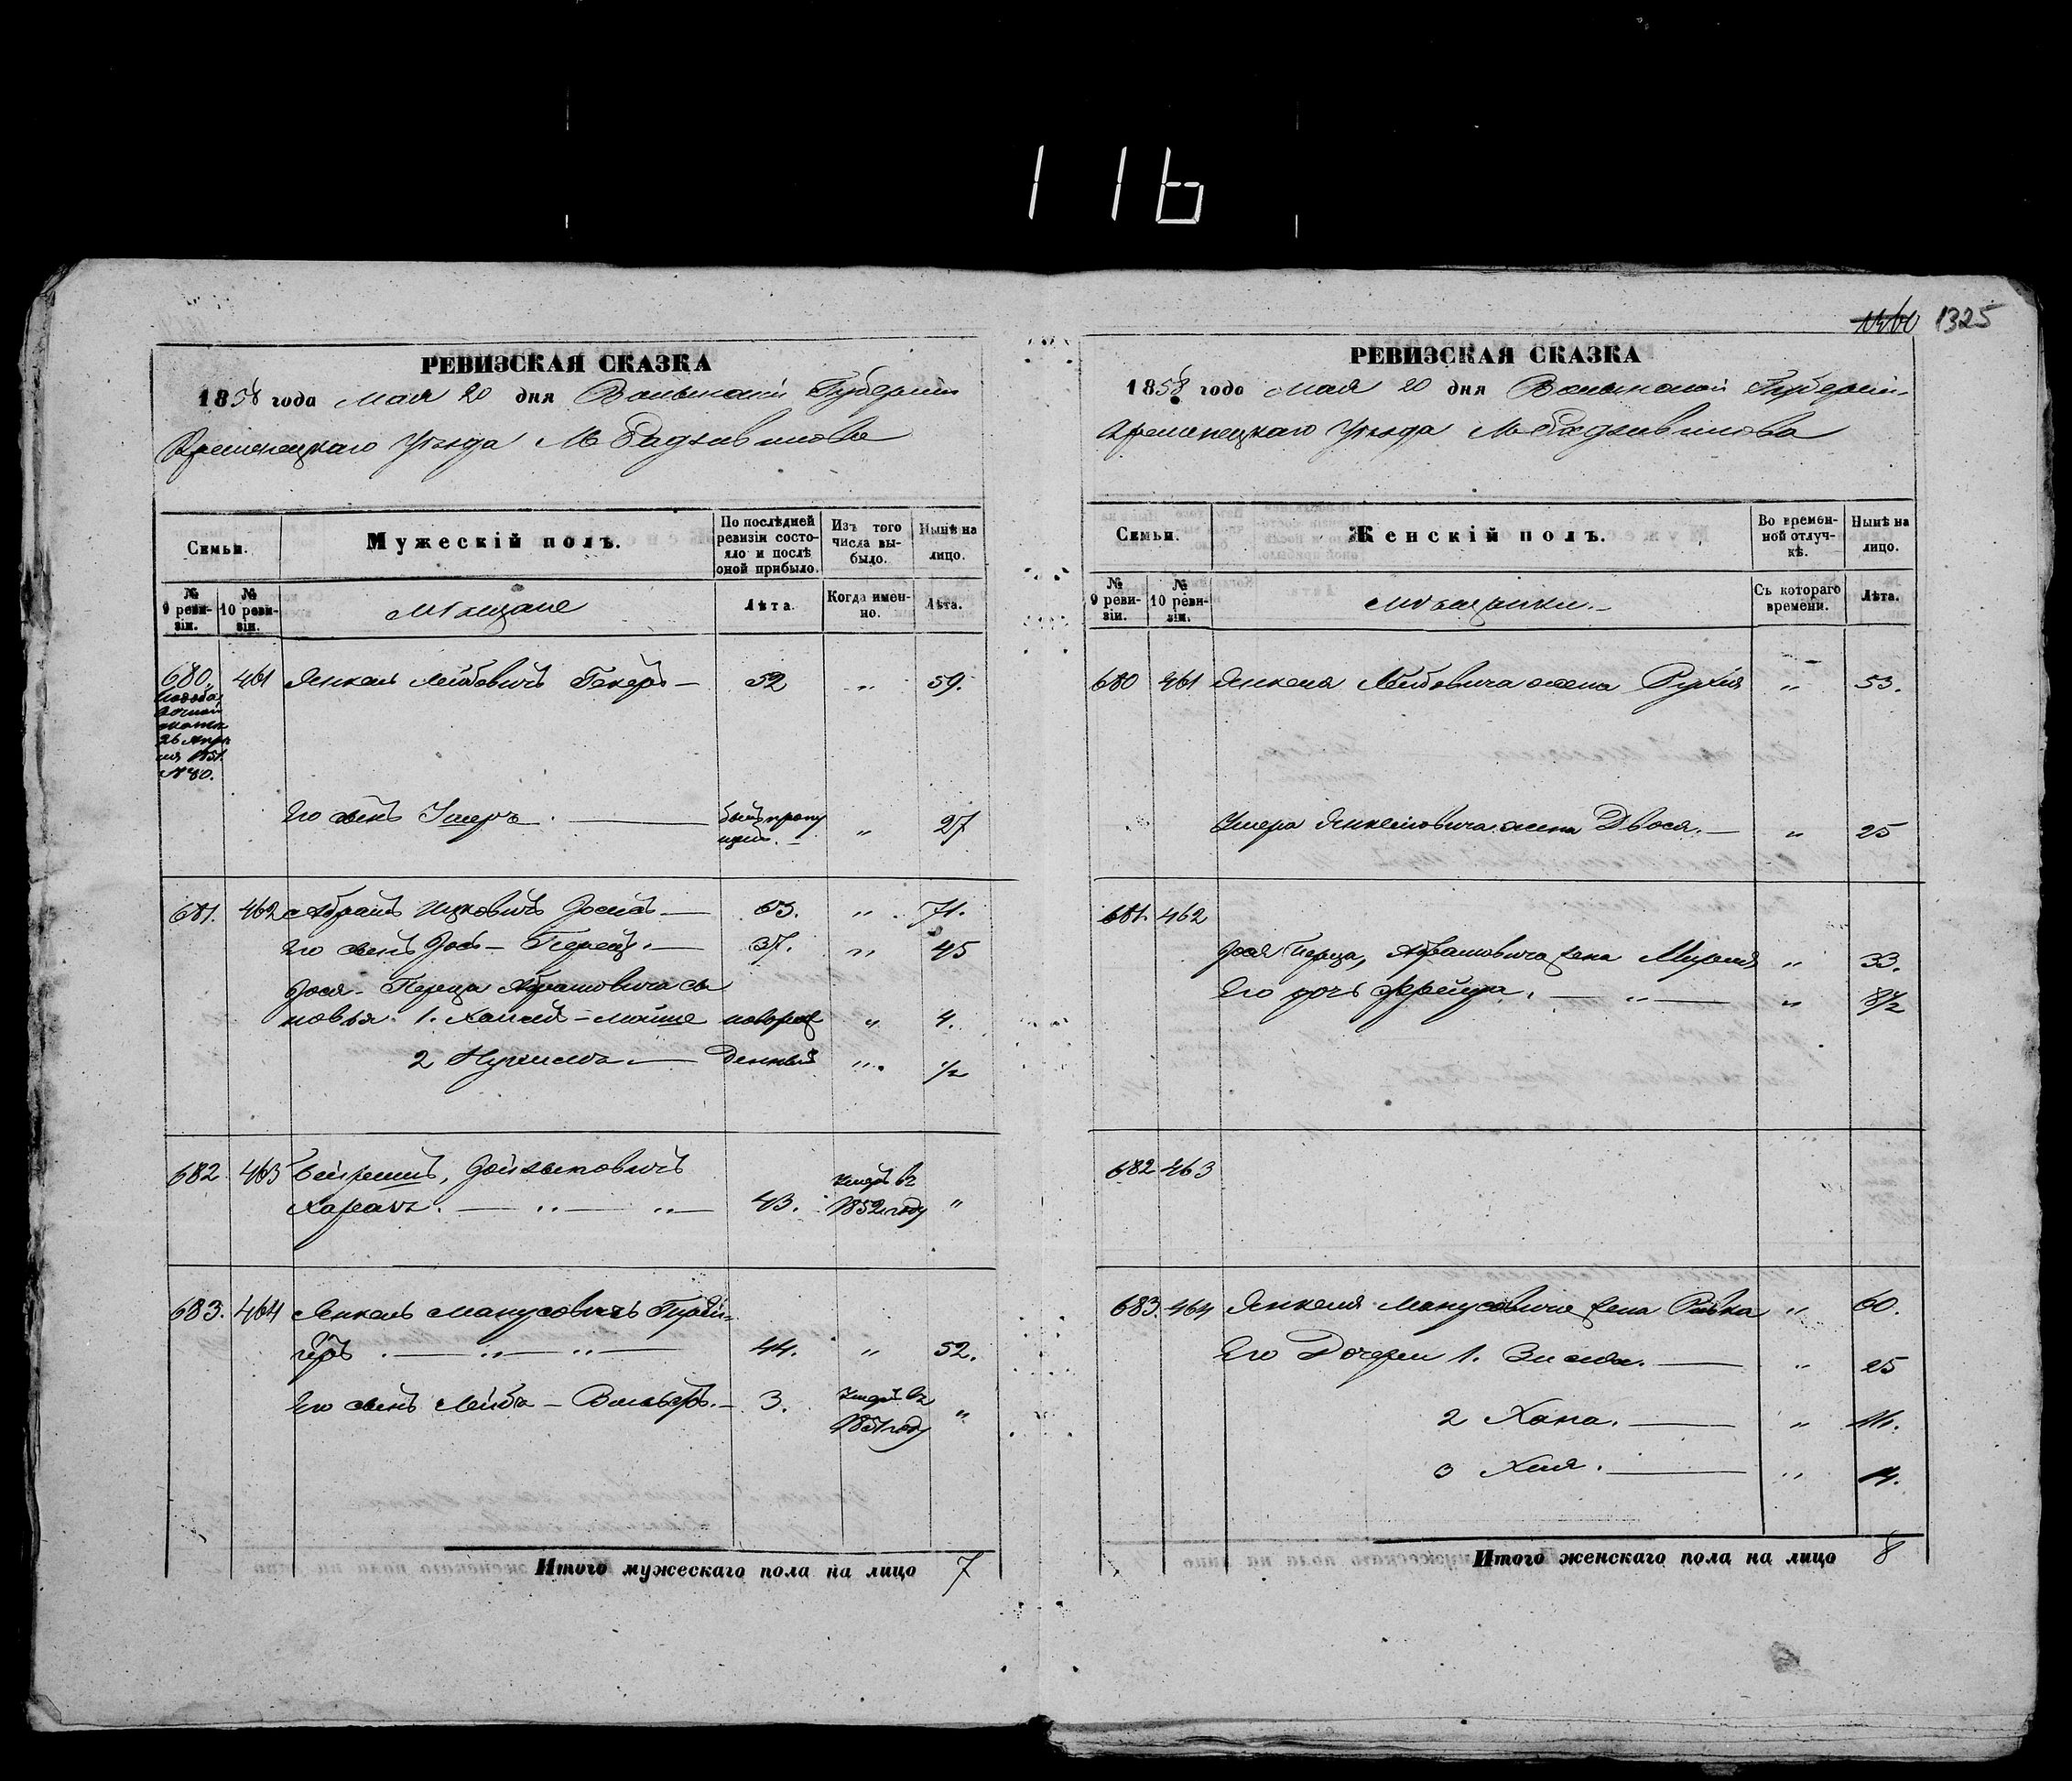 116
1325
РЕВИЗСКАЯ СКАЗКА
1858 года Мая 20 дня Волынской Губернии
Кременецкаго Уезда М Радзивилова
Семьи.
Мужескій полъ.
По послѣдней ревизіи состояло и послѣ оной прибыло.
Изъ того числа выбыло.
Нынѣ на лицо.
№ 9 ревизіи.
№ 10 ревизіи.
Мѣщане
Лѣта.
Когда именно.
Лѣта.
680. 461 Янкель Лейбовичъ Гекеръ — 52 " 59.
26 Апреля 1851
№ 80.
Его сынъ Ушеръ. — былъ пропущенъ. — " 27
681. 462 Абрамъ Ицковичъ — 63. " 71.
Его сынъ Іось - Перецъ. — 37. " 45
Іося - Переца Абрамовича сы
новья. 1. — Мойше новорож " 4.
2 — денный " ½
682 463
43. Умеръ въ 1852 году "
683. 464 Янкель Манусовичъ
геръ. — " — " — 44. " 52.
Его сынъ Лейба - Вольфъ. — 3. Умеръ въ 1851 году "
Итого мужескаго пола на лицо 7
РЕВИЗСКАЯ СКАЗКА
1858 года Мая 20 дня Волынской Губерніи
Кременецкаго Уезда М Радзивилова
Семьи.
Женскій полъ.
Во временной отлучкѣ.
Нынѣ на лицо.
№ 9 ревизіи.
№ 10 ревизіи.
Мѣщанки. -
Съ котораго времени.
Лѣта.
680 461 Янкеля Лейбовича жена Рухля " 53.
Ушера Янкелевича жена Двося. — " 25
681. 462
Іося Переца, Абрамовича жена " 33.
Его дочь Фрейда. — " — " 8½
682 463
683. 464 Янкеля Манусовича жена Ривка " 60.
Его Дочери 1. Зисля. — " 25
2 Хана. — "
3 Хая. — "
Итого женскаго пола на лицо 8